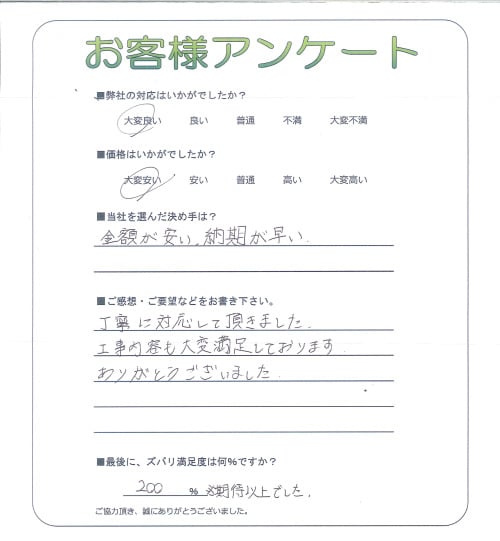 お客様アンケート
■弊社の対応はいかがでしたか？
大変良い 良い 普通 不満 大変不満
■価格はいかがでしたか？
大変安い 安い 普通 高い 大変高い
■当社を選んだ決め手は？
金額が安い。納期が早い.
■ご感想・ご要望などをお書き下さい。
丁寧に対応して頂きました.
工事内容も大変満足しております.
ありがとうございました.
■最後に、ズバリ満足度は何%ですか？
200 % ※期待以上でした.
ご協力頂き、誠にありがとうございました。